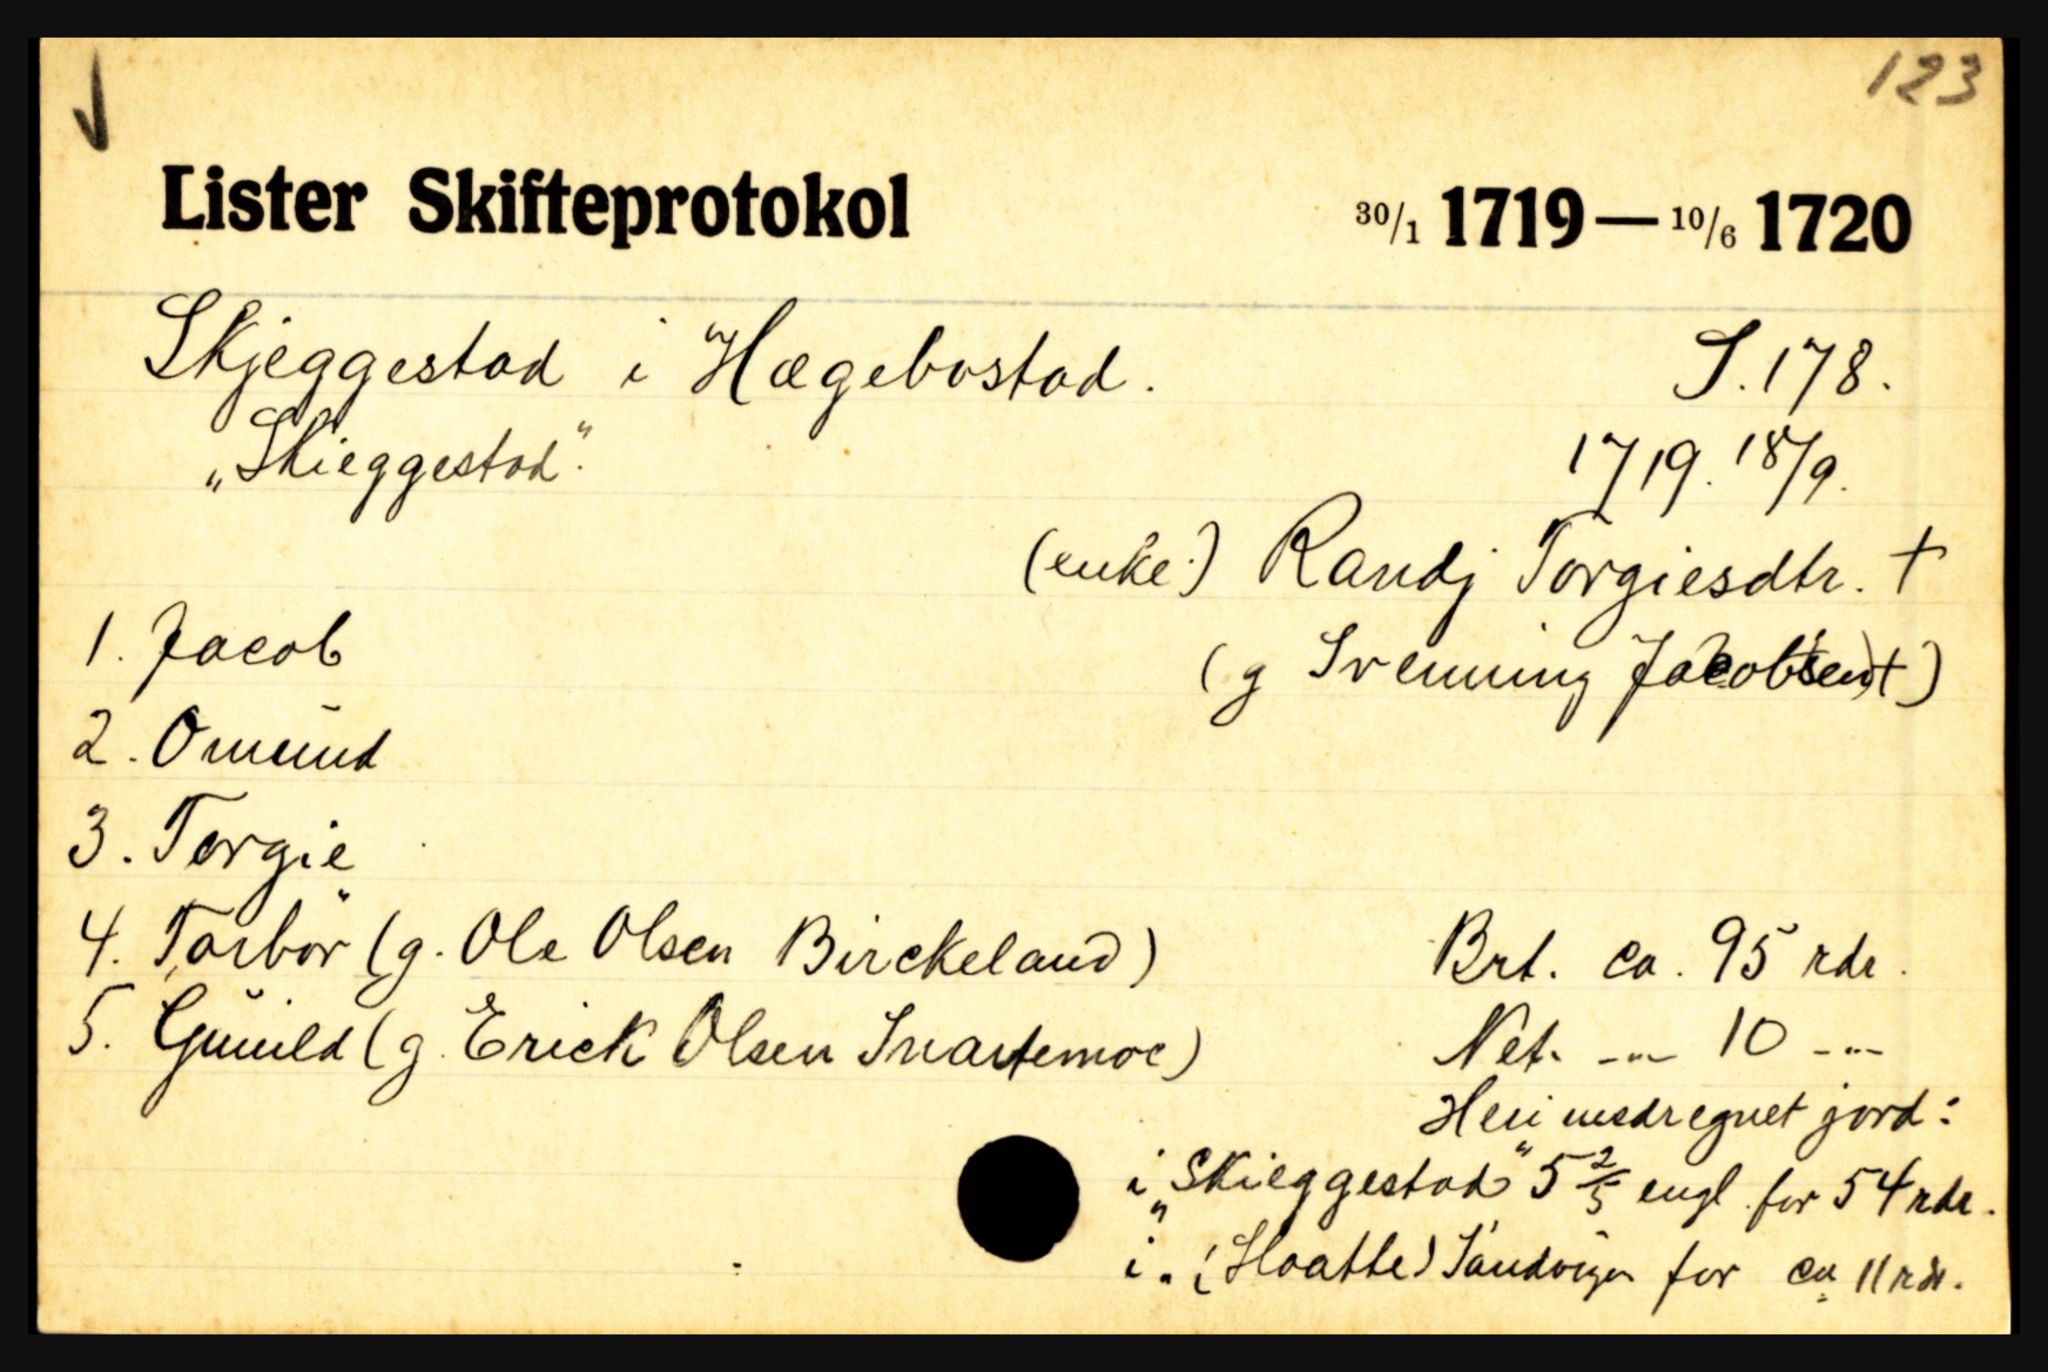 123
Lister Skifteprotokol 30/1 1719 — 10/6 1720
Skjeggestad i Hægebostad. S. 178.
„Skieggestad". 1719. 18/9.
(enke.) Randj Torgiesdtr. †
1. Jacob (g Svenning Jacobsen †)
2. Omund
3. Torgie
4. Torbör (g. Ole Olsen Birckeland) Brt. ca. 95 rdr.
5. Gunild (g. Erick Olsen Snartemoe) Net. -„- 10 -„-
Heri medregnet jord:
i „Skieggestad" 5 2/5 engl. for 54 rdr.
i „ (Hoatte) Sandvigen for ca 11 rdr.